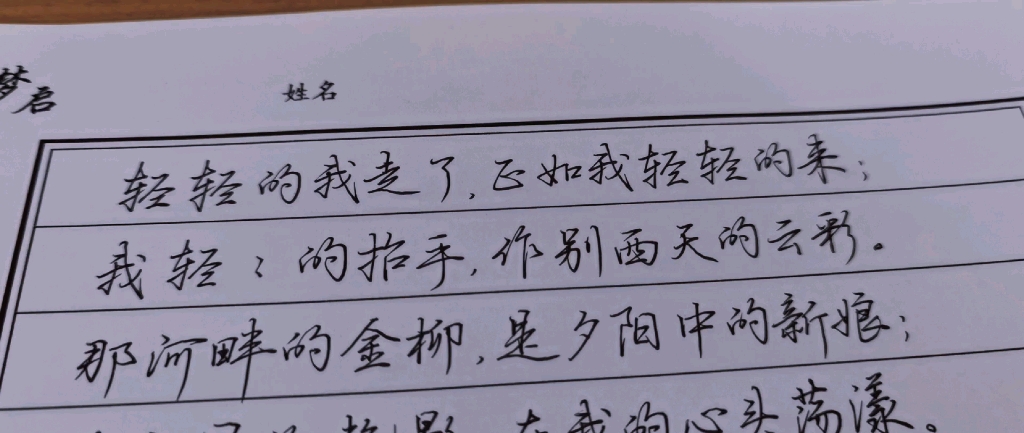 梦启
姓名
轻轻的我走了,正如我轻轻的来;
我轻々的招手,作别西天的云彩。
那河畔的金柳,是夕阳中的新娘;
影 在我的心头荡漾。